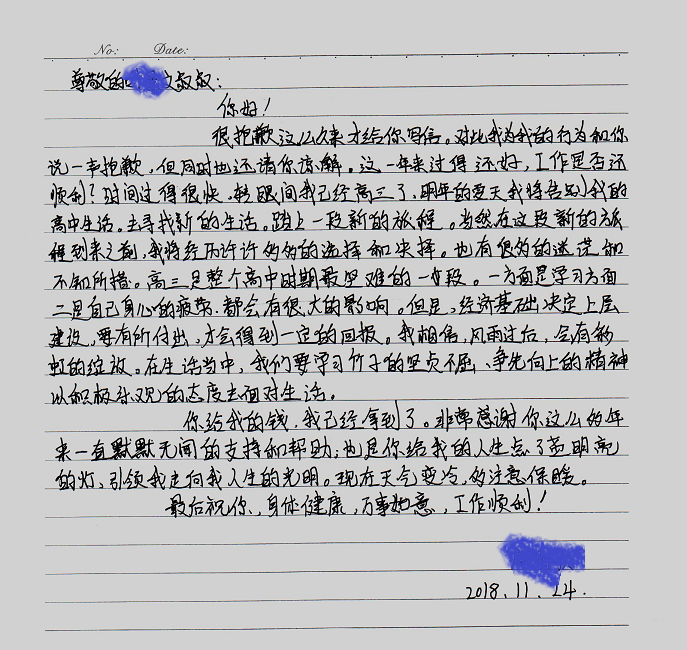 No: Date:
尊敬的 叔叔:
你好!
很抱歉这么久来才给你写信。对此我为我的行为和你
说一声抱歉,但同时也还请你谅解。这一年来过得还好,工作是否还
顺利?时间过得很快,转眼间我已经高三了,明年的夏天我将告别我的
高中生活。去寻找新的生活。踏上一段新的旅程。当然在这段新的旅
程到来之前,我将经历许许多多的选择和抉择。也有很多的迷茫和
不知所措。高三是整个高中时期最坚难的一个段。一方面是学习方面
二是自己身心的疲劳,都会有很大的影响。但是,经济基础决定上层
建设,要有所付出,才会得到一定的回报。我相信,风雨过后,会有彩
虹的绽放。在生活当中,我们要学习竹子的坚贞不屈、争先向上的精神
以积极乐观的态度去面对生活。
你给我的钱,我已经拿到了。非常感谢你这么多年
来一直默默无闻的支持和帮助;也是你给我的人生点了盏明亮
的灯,引领我走向我人生的光明。现在天气变冷,多注意保暖。
最后祝你,身体健康,万事如意,工作顺利!
2018.11.24.